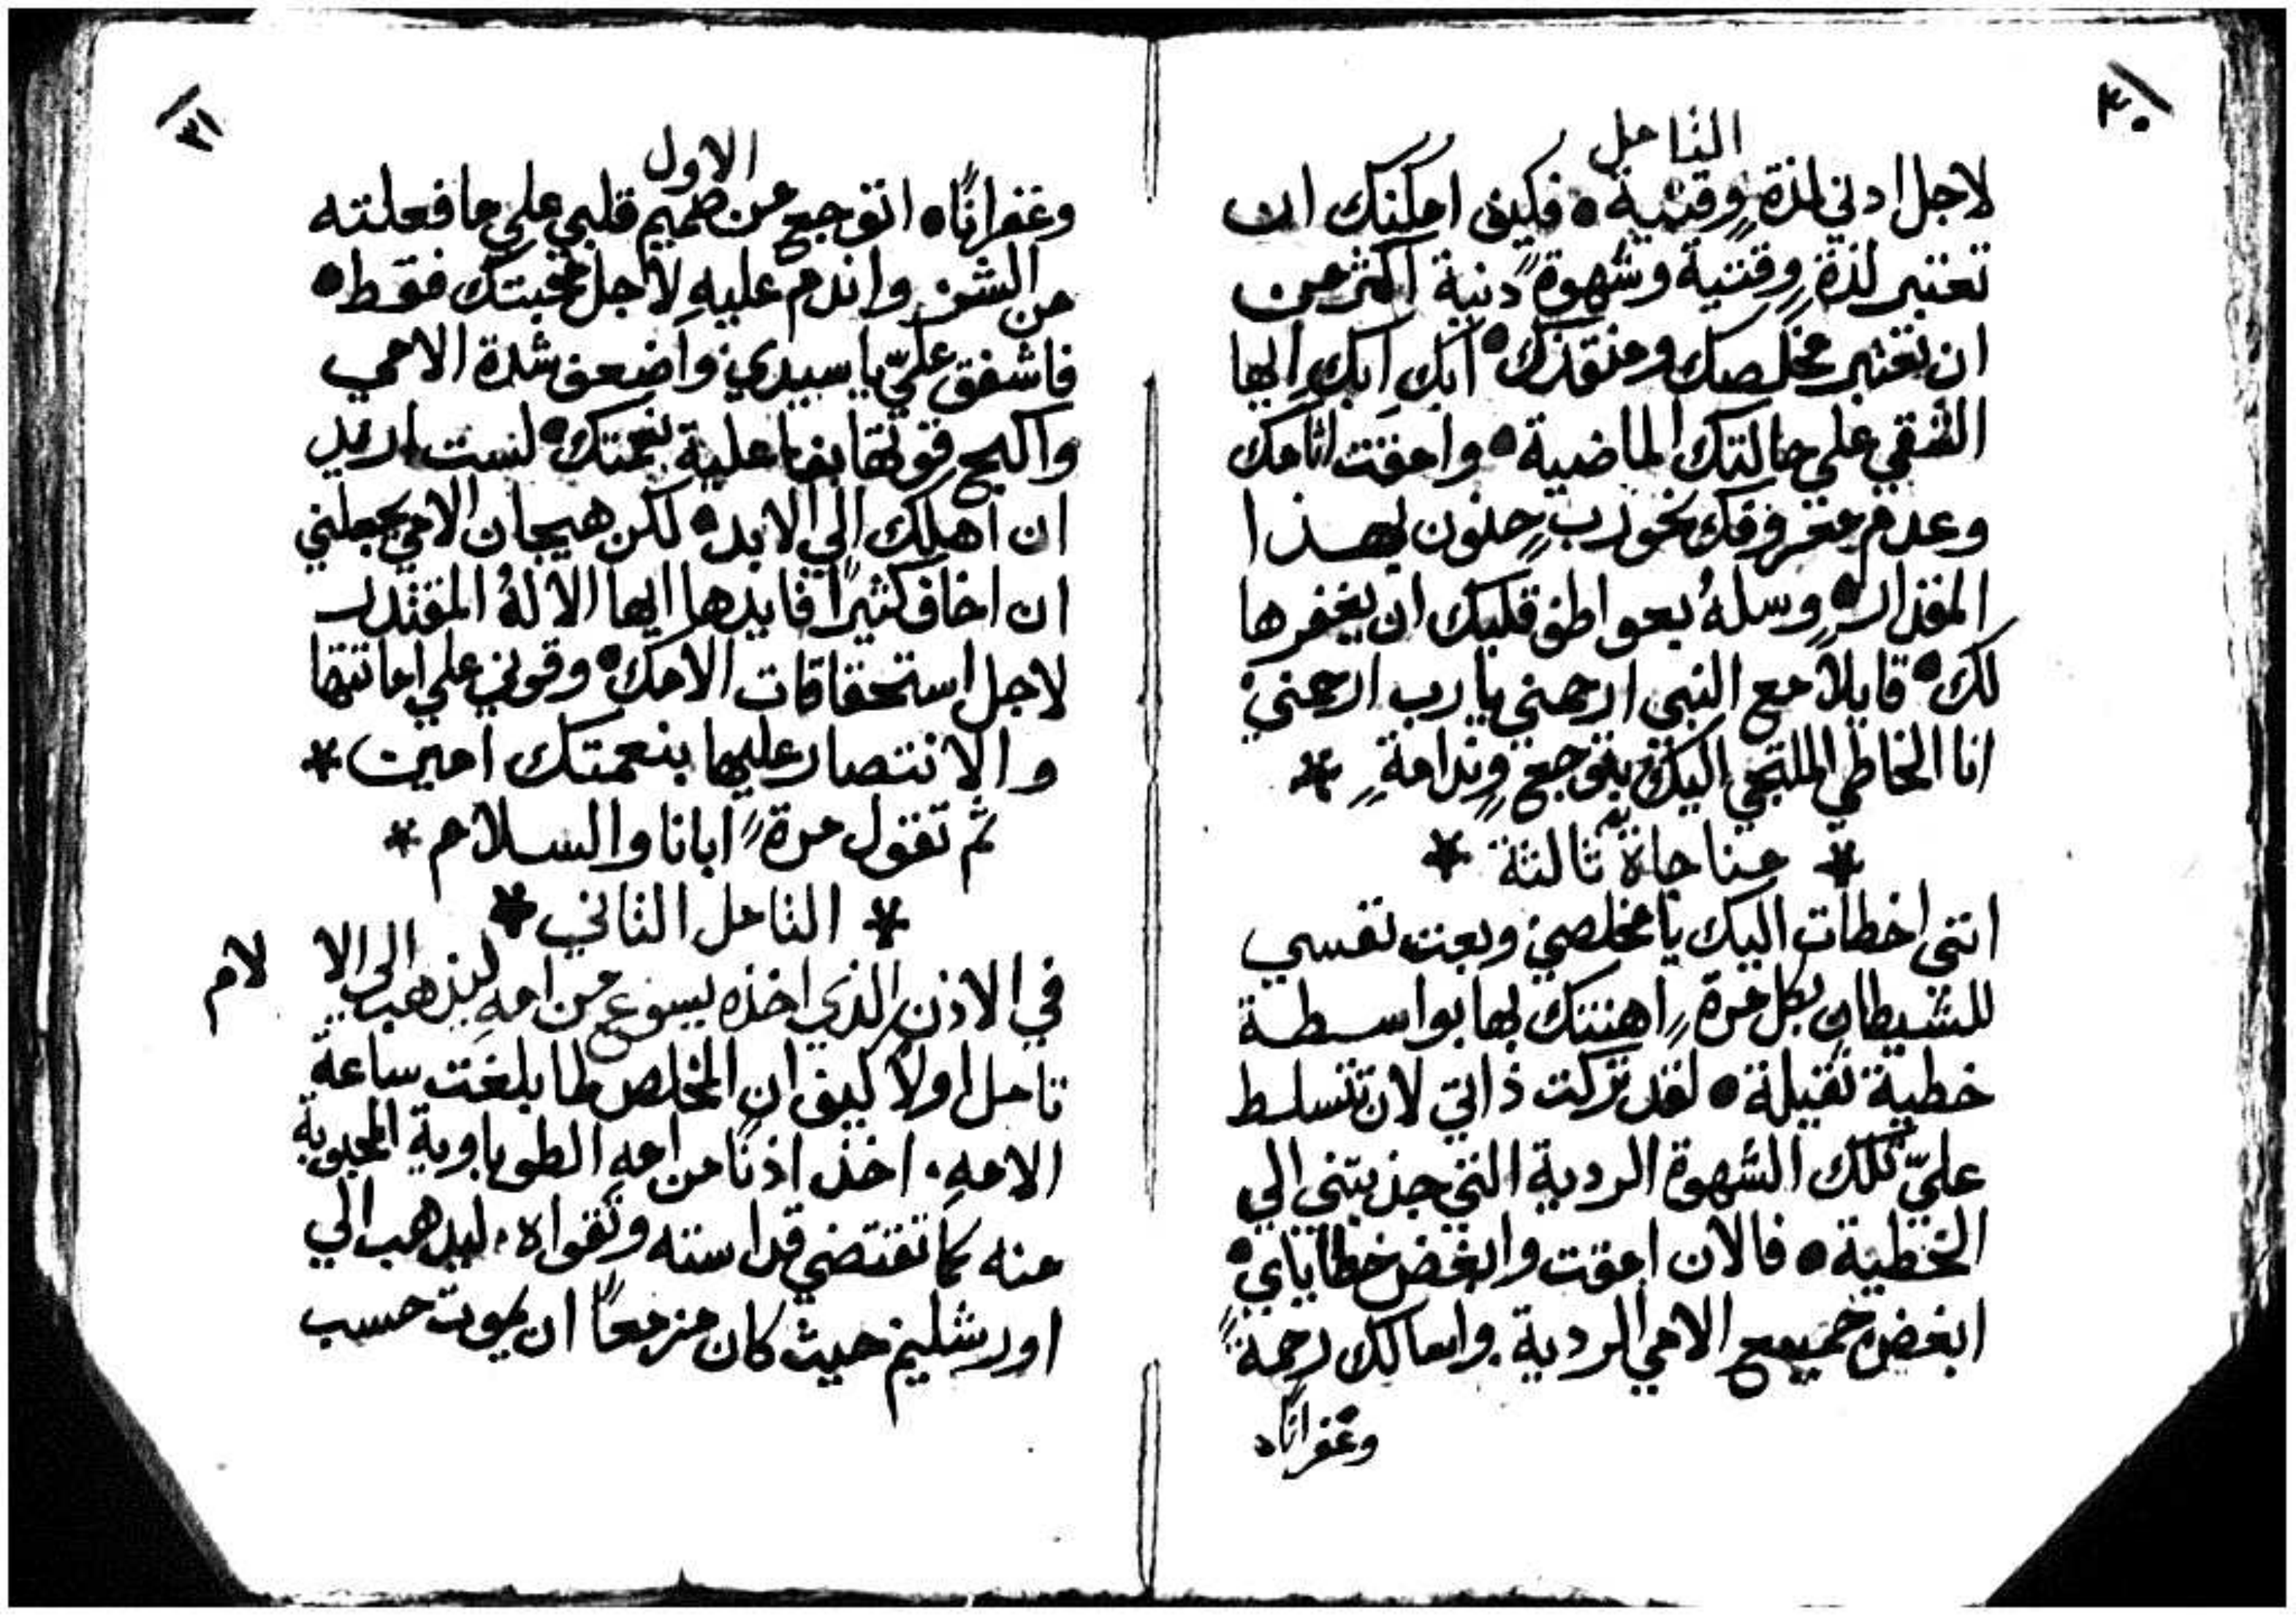 ٣٠
التامل
لاجل ادني لذة وقتية • فكيف امكنك ان
تعتبر لذة وقتية وشهوة دنية اكثر من
ان تعتبر مخلصك ومنقذك • ابك ابك ايها
الشقي علي حالتك الماضية • وامقت اثامك
وعدم معروفك نحو رب حنون بهذا
المقدار • وسله بعواطف قلبك ان يغفرها
لك • قايلا مع النبي ارحمني يا رب ارحمني
انا الخاطي الملتجي اليك بتوجع وندامة *
* مناجاة ثالثة *
انني اخطات اليك يا مخلصي وبعت نفسي
للشيطان بكل مرة اهنتك بها بواسطة
خطية ثقيلة • لقد تركت ذاتي لان تتسلط
عليّ تلك الشهوة الردية التي جذبتني الي
الخطية • فالان امقت وابغض خطاياي •
ابغض جميع الامي الردية واسالك رحمة
وغفرانا
٣١
الاول
وغفرانًا • اتوجع من صميم قلبي علي ما فعلته
من الشر واندم عليه لاجل محبتك فقط •
فاشفق عليّ يا سيدي واضعف شدة الامي
واكبح قوتها بفاعلية نعمتك • لست اريد
ان اهلك الي الابد • لكن هيجان الامي يجعلني
ان اخاف كثيرًا فابدها ايها الاله المقتدر
لاجل استحقاقات الامك • وقوني علي اماتتها
والانتصار عليها بنعمتك امين *
ثم تقول مرة ابانا والسلام *
* التامل الثاني *
في الاذن الذي اخذه يسوع من امه ليذهب الى الا لام
تامل اولا كيف ان المخلص لما بلغت ساعة
الامه . اخذ اذنا من امه الطوباوية المحبوبة
منه كما تقتضي قداسته وتقواه . ليذهب الي
اورشليم حيث كان مزمعًا ان يموت حسب